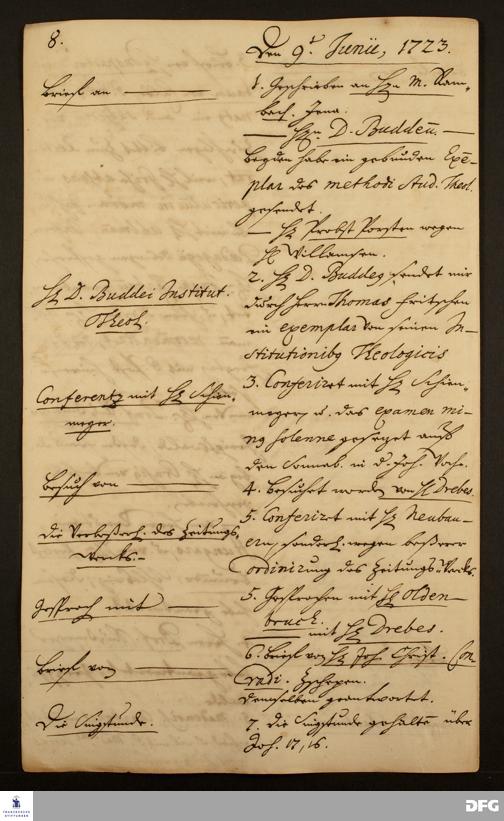 8.
Den 9t. Junii, 1723.
Brief an
1. Geschrieben an Hn M. Ram-
bach. Jena.
— Hn. D. Buddeu. —
Beyden habe ein gebunden Exem-
plar des methodi stud. Theol.
gesendet.
— H Probst Porsten wegen
H Villamsen.
H D. Buddei Institut.
Theol.
2. H D. Buddeus, sendet mir
durch Herrn Thomas Fritschen
ein exemplar von seinen In-
stitutionibus Theologicis
Conferentz mit H Schien-
meyer.
3. Conferiret mit H Schien-
meyern u. das examen mi-
nus solenne gesetzet auf
den Sonnab. in d. Joh. Woche.
Besuch von
4. Besucht worden von H Drebes.
Die Verbesserung des Zeitungs-
Wercks.
5. Conferiret mit H Neubau-
ern, sonderl. wegen besserer
ordinirung des Zeitungs-Wercks.
Gespräch mit
5. Gesprochen mit H Olden-
bruch.
mit H Drebes.
Brief von
6. Brief von H Joh. Christ. Con-
radi. Zschepen.
Demselben geantwortet.
Die Singstunde.
7. Die Singstunde gehalten über
Joh. 17, 16.
FRANCKESCHE
STIFTUNGEN
DFG